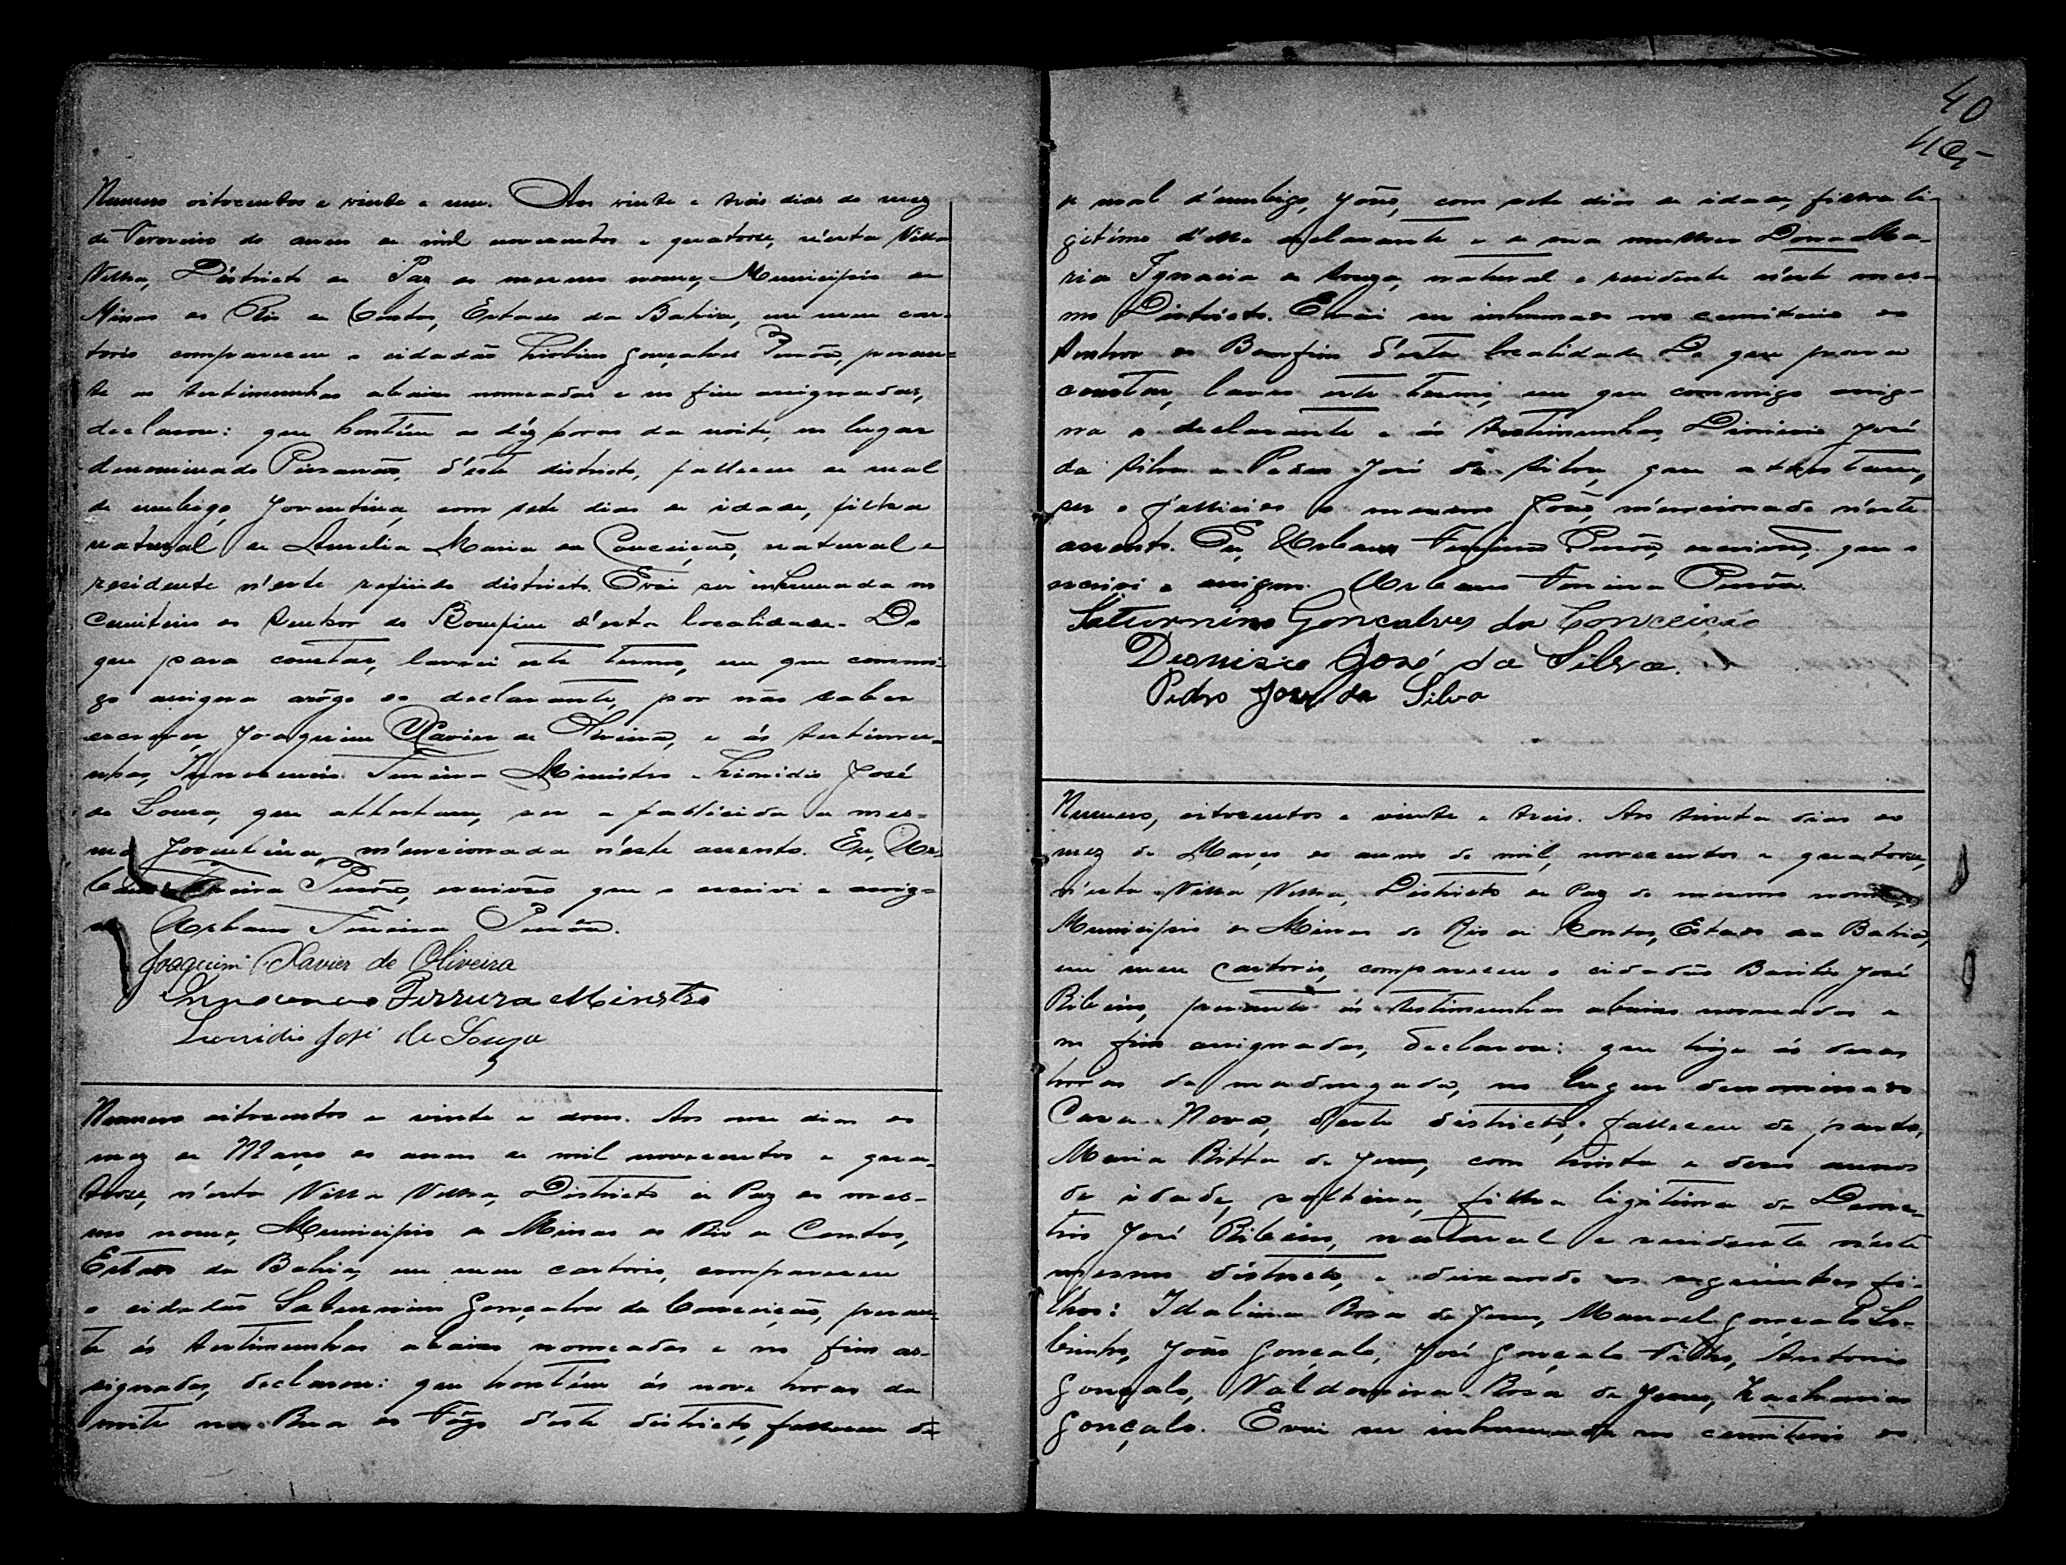 Numero oitocentos e vinte e um. Aos vinte e tres dias do mez
de Fevereiro do anno de mil novecentos e quatorse, n'esta Villa
Velha, Districto de Paz do mesmo nome, Municipio de
Minas do Rio de Contas, Estado da Bahia, em meu car-
torio compareceu o cidadão Gonçalves, peran-
te as testimunhas abaixo nomeadas e no fim assignadas,
declarou: que hontem as déz horas da noite, no lugar
denominado, d'este districto, falleceu de mal
de umbigo, Joventina, com sete dias de idade, filha
natural de Aurelia Maria da Conceição, natural e
residente n'este referido districto. E vai ser inhumada no
Cemiterio do Senhor do Bomfim d'esta localidade. Do
que para constar, lavrei este termo, em que commi-
go assigna arôgo do declarante, por não saber
escrever, Joaquim Xavier de Oliveira, e ás testimu-
nhas, Innocencio Ferreira Ministro e Leonidio José
de Souza, que attestam, ser a fallicida a mes-
ma Joventina, mencionada n'este assento. Eu, Ur-
bano Ferreira, escrivão que o escrivi e assig-
no Urbano Ferreira
Joaquim Xavier de Oliveira
Innocencio Ferreira Ministro
Leonidio José de Souza
Numero oitocentos e vinte e dous. Aos onze dias do
mez de Março do anno de mil novecentos e qua-
torse, n'esta Villa Velha, Districto de Paz do mes-
mo nome, Municipio de Minas do Rio de Contas,
Estado da Bahia, em meu cartorio, compareceu
o cidadão Saturnino Gonçalves da Conceição, peran-
te ás testimunhas abaixo nomeadas e no fim as-
signadas, declarou: que hontem ás nove horas da
noite na Rua do Fôgo d'este districto, falleceu de
40
o mal d'umbigo, João, com sete dias de idade, filho le-
gitimo d'elle declarante e de sua mulher Dona Ma-
ria Ignacia de Souza, natural e residente n'este mes-
mo Districto. E vai ser inhumado no cemiterio do
Senhor do Bomfim d'esta localidade. Do que para
constar, lavro este termo, em que commigo assig-
na o declarante e ás testimunhas, Dionisio José
da Silva e Pedro José da Silva, que attestam,
ser o fallicido o mesmo João, mencionado n'este
assento. Eu, Urbano Ferreira, escrivão, que o
escrivi e assigno. Urbano Ferreira
Saturnino Gonçalves da Conceição
Dionizio José da Silva.
Pedro José da Silva
Numero, oitocentos e vinte e tres. Aos trinta dias do
mez de Março do anno de mil, novecentos e quatorse,
n'esta Villa Velha, Districto de Paz do mesmo nome,
Municipio de Minas do Rio de Contas, Estado da Bahia,
em meu cartorio, compareceu o cidadão Basilio José
Ribeiro, perante ás testimunhas abaixo nomeadas e
no fim assignadas, declarou: que hoje ás duas
horas da madrugada, no lugar denominado
Casa Nova, d'este districto, falleceu de parto,
Maria Ritta de Jesus, com trinta e dous annos
de idade, solteira, filha legitima de Deme-
trio José Ribeiro, natural e residente n'este
mesmo districto, e deixando os seguintes fi-
lhos: Idalina Rosa de Jesus, Manoel Gonçalo So-
brinho, João Gonçalo, José Gonçalo Filho, Antonio
Gonçalo, Valdomira Rosa de Jesus, Zacharias
Gonçalo. E vai ser inhumada no cemiterio do